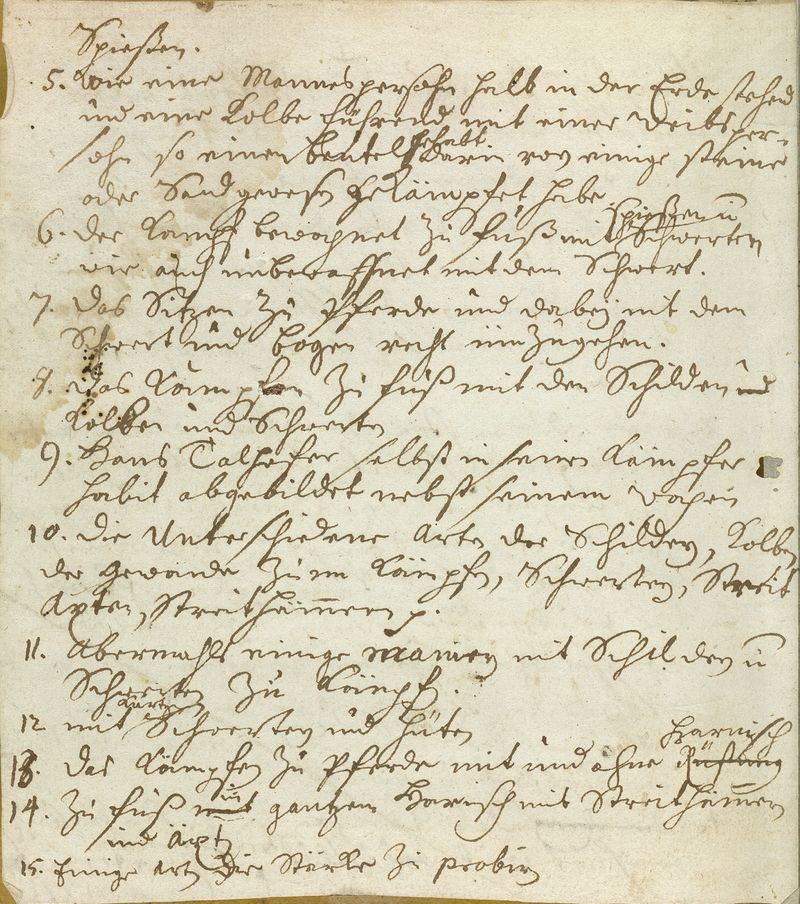 Spießen.
5. Wie eine Mannespersohn halb in der Erde stehend
und eine Kolbe führend mit einer Weibsper-
sohn so einen Beutel gehabt darin von einige steine
oder Sand gewesen gekämpfet habe
6. der Kampf bewapnet zu fuß mit Spießen u Schwerten
wie auch unbewaffnet mit dem Schwert.
7. das Sitzen zu Pferde und dabey mit dem
Schwert und bogen recht umzugehen.
8. das Kämpfen zu fuß mit den Schilden und
Kolben und Schwerten
9. Hans Talhofer selbst in seinen Kämpfer
habit abgebildet nebst seinem Wapen
10. die Unterschiedene Arten der Schilden, Kolben
der gewande zum Kämpfen, Schwerten, Streit
Axten, Streithämmern p.
11. Abermahls einige manier mit Schilden u
Schwerten zu Kämpfen.
12 mit Schwerten und Hüten
13. das Kämpfen zu Pferde mit und ohne Rüstung Harnisch
14. Zu fuß in gantzem Harnisch mit Streithämmern
und Äxten
15. Einige Arten die Stärke zu probiren